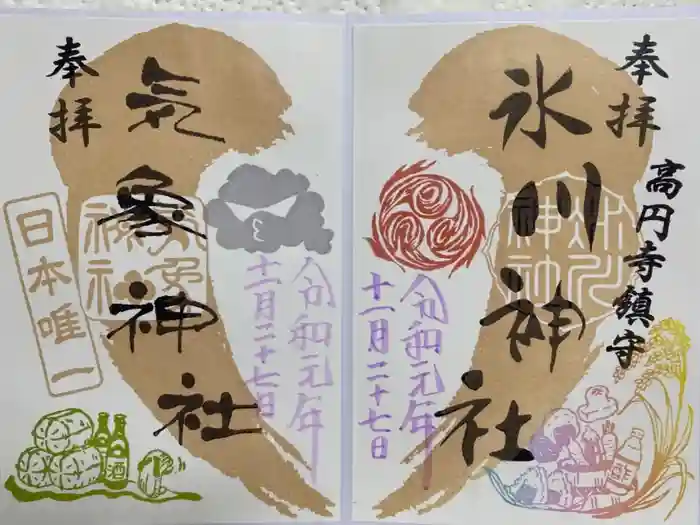 奉拝
氷川神社
高円寺鎮守
令和元年
十一月二十七日
酢
奉拝
気象神社
日本唯一
令和元年
十一月二十七日
酒